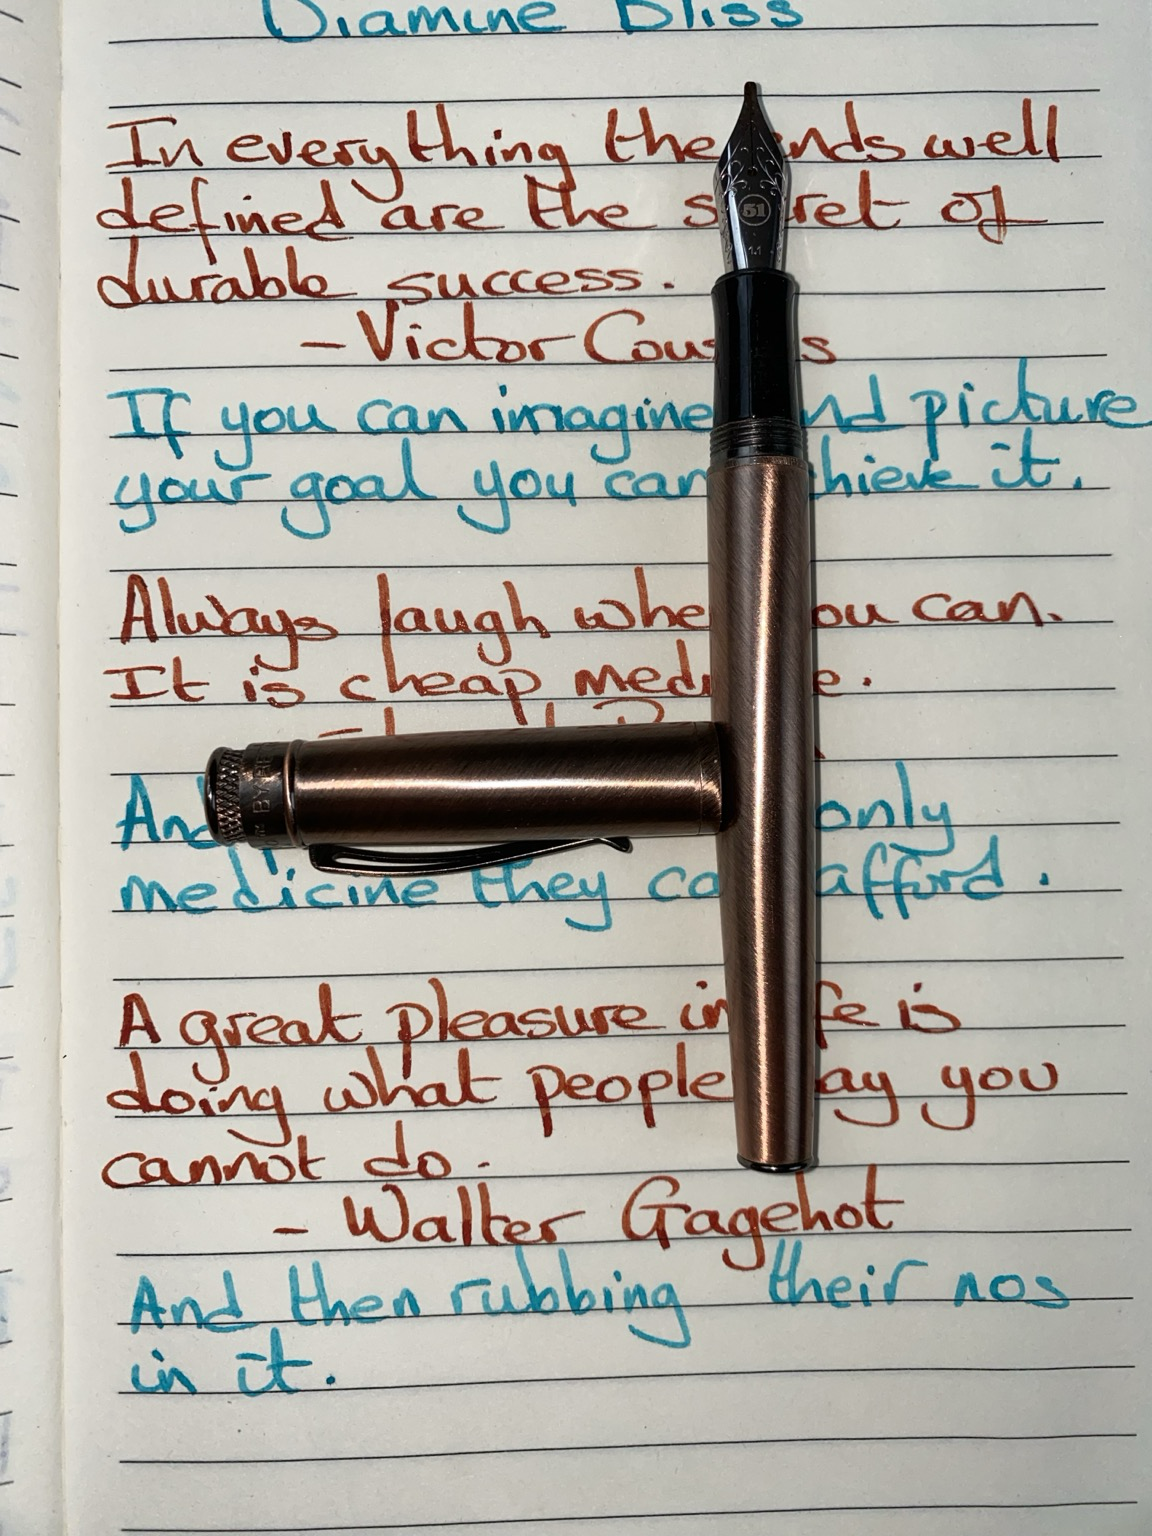 Diamine Bliss
In everything the ends well
defined are the secret of
durable success.
- Victor
If you can imagine and picture
your goal you can achieve it.
Always laugh when you can.
It is cheap medicine.
only
medicine they can afford.
A great pleasure in life is
doing what people say you
cannot do.
- Walter Gagehot
And then rubbing their nos
in it.
51
1.1